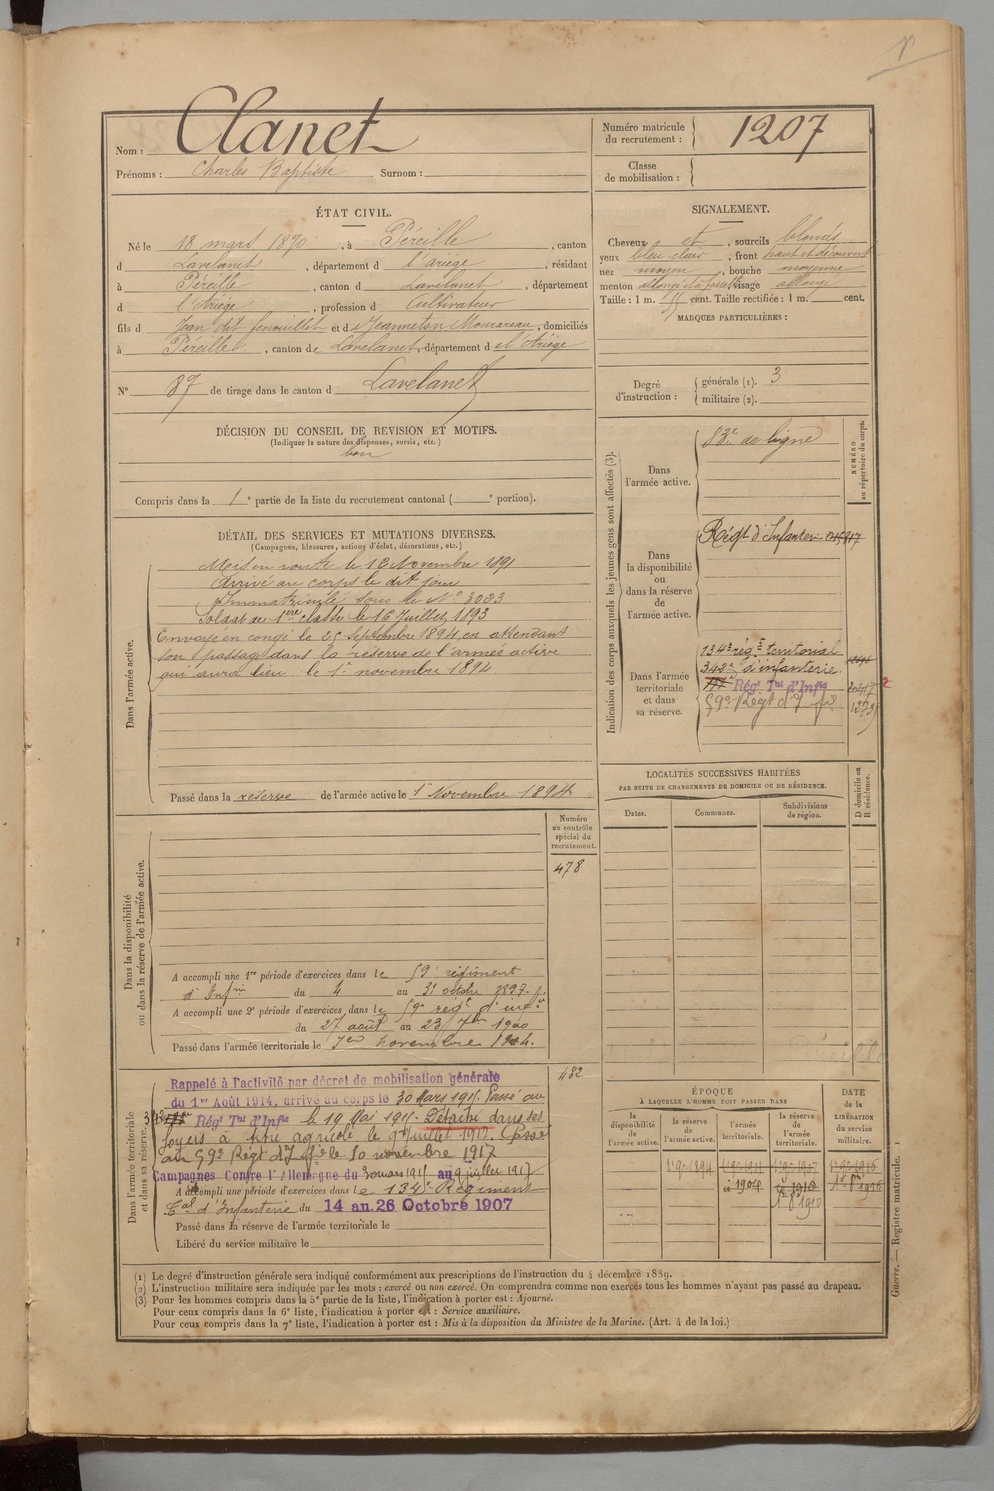 Nom : Clanet
Prénoms : Charles Baptiste Surnom :
Numéro matricule
du recrutement : 1207
Classe
de mobilisation :
ÉTAT CIVIL.
Né le 18 mars 1870, à Péreille, canton
d Lavelanet, département d l'ariège, résidant
à Péreille, canton d Lavelanet, département
d l'Ariège, profession d Cultivateur
fils d Jean dit fenouillet et d Jeanneton Mourareau, domiciliés
à Péreille, canton de Lavelanet, département d el'Ariège
N° 87 de tirage dans le canton d Lavelanet
DÉCISION DU CONSEIL DE REVISION ET MOTIFS.
(Indiquer la nature des dispenses, sursis, etc.)
bon
Compris dans la 1e partie de la liste du recrutement cantonal ( e portion).
SIGNALEMENT.
Cheveux et, sourcils blonds
yeux bleu-clair, front haut et découvert
nez moyen, bouche moyenne
menton visage allongé
Taille : 1 m. 55 cent. Taille rectifiée : 1 m. cent.
MARQUES PARTICULIÈRES :
Degré
d'instruction :
générale (1). 3
militaire (2).
DÉTAIL DES SERVICES ET MUTATIONS DIVERSES.
(Campagnes, blessures, actions d'éclat, décorations, etc.)
Dans l'armée active.
Mis en route le 12 Novembre 1891
Arrivé au corps le dit jour
Immatriculé sous le N° 3033
Soldat de 1ère classe le 16 Juillet 1893
Envoyé en congé le 25 Septembre 1894 en attendant
son passage dans la réserve de l'armée active
qui aura lieu le 1er novembre 1894
Passé dans la réserve de l'armée active le 1er Novembre 1894.
Indication des corps auxquels les jeunes gens sont affectés (3).
NUMÉRO
au répertoire du corps.
Dans
l'armée active.
83e de ligne
Dans
la disponibilité
ou
dans la réserve
de
l'armée active.
Régt d'Infanterie
Dans l'armée
territoriale
et dans
sa réserve.
134e rég. territorial
342e d'infanterie
Régt Tal d'Infie
59e Régt d'Ifie
LOCALITÉS SUCCESSIVES HABITÉES
PAR SUITE DE CHANGEMENTS DE DOMICILE OU DE RÉSIDENCE.
Dates.
Communes.
Subdivisions
de région.
D domicile ou
R résidence.
Dans la disponibilité
ou dans la réserve de l'armée active.
Numéro
au contrôle
spécial du
recrutement.
478
A accompli une 1re période d'exercices dans le 59e régiment
d'Infrie du 4 au 31 octobre 1897.
A accompli une 2e période d'exercices dans le 59e régt d'infie
du 27 août au 23 7bre 1900
Passé dans l'armée territoriale le 1er novembre 1904.
Dans l'armée territoriale
et dans sa réserve.
432
Rappelé à l'activité par décret de mobilisation générale
du 1er Août 1914, arrivé au corps le 30 Mars 1915. Passé au
Régt Tal d'Infie le 19 Mai 1915. Détaché dans ses
foyers à titre agricole le 9 Juillet 1917. Passé
au 59e Régt d'Ifie le 10 novembre 1917
Campagnes Contre l'Allemagne du 30 mars 1915 au 9 juillet 1917
A accompli une période d'exercices dans le 134e Régiment
Tal d'Infanterie du 14 au 26 Octobre 1907
Passé dans la réserve de l'armée territoriale le
Libéré du service militaire le
ÉPOQUE
À LAQUELLE L'HOMME DOIT PASSER DANS
la
disponibilité
de
l'armée active.
la réserve
de
l'armée active.
l'armée
territoriale.
la réserve
de
l'armée
territoriale.
DATE
de la
LIBÉRATION
du service
militaire.
1er 9e 1894
1904
1910
Guerre. — Registre matricule. 1
(1) Le degré d'instruction générale sera indiqué conformément aux prescriptions de l'instruction du 4 décembre 1889.
(2) L'instruction militaire sera indiquée par les mots : exercé ou non exercé. On comprendra comme non exercés tous les hommes n'ayant pas passé au drapeau.
(3) Pour les hommes compris dans la 5e partie de la liste, l'indication à porter est : Ajourné.
Pour ceux compris dans la 6e liste, l'indication à porter est : Service auxiliaire.
Pour ceux compris dans la 7e liste, l'indication à porter est : Mis à la disposition du Ministre de la Marine. (Art. 4 de la loi.)